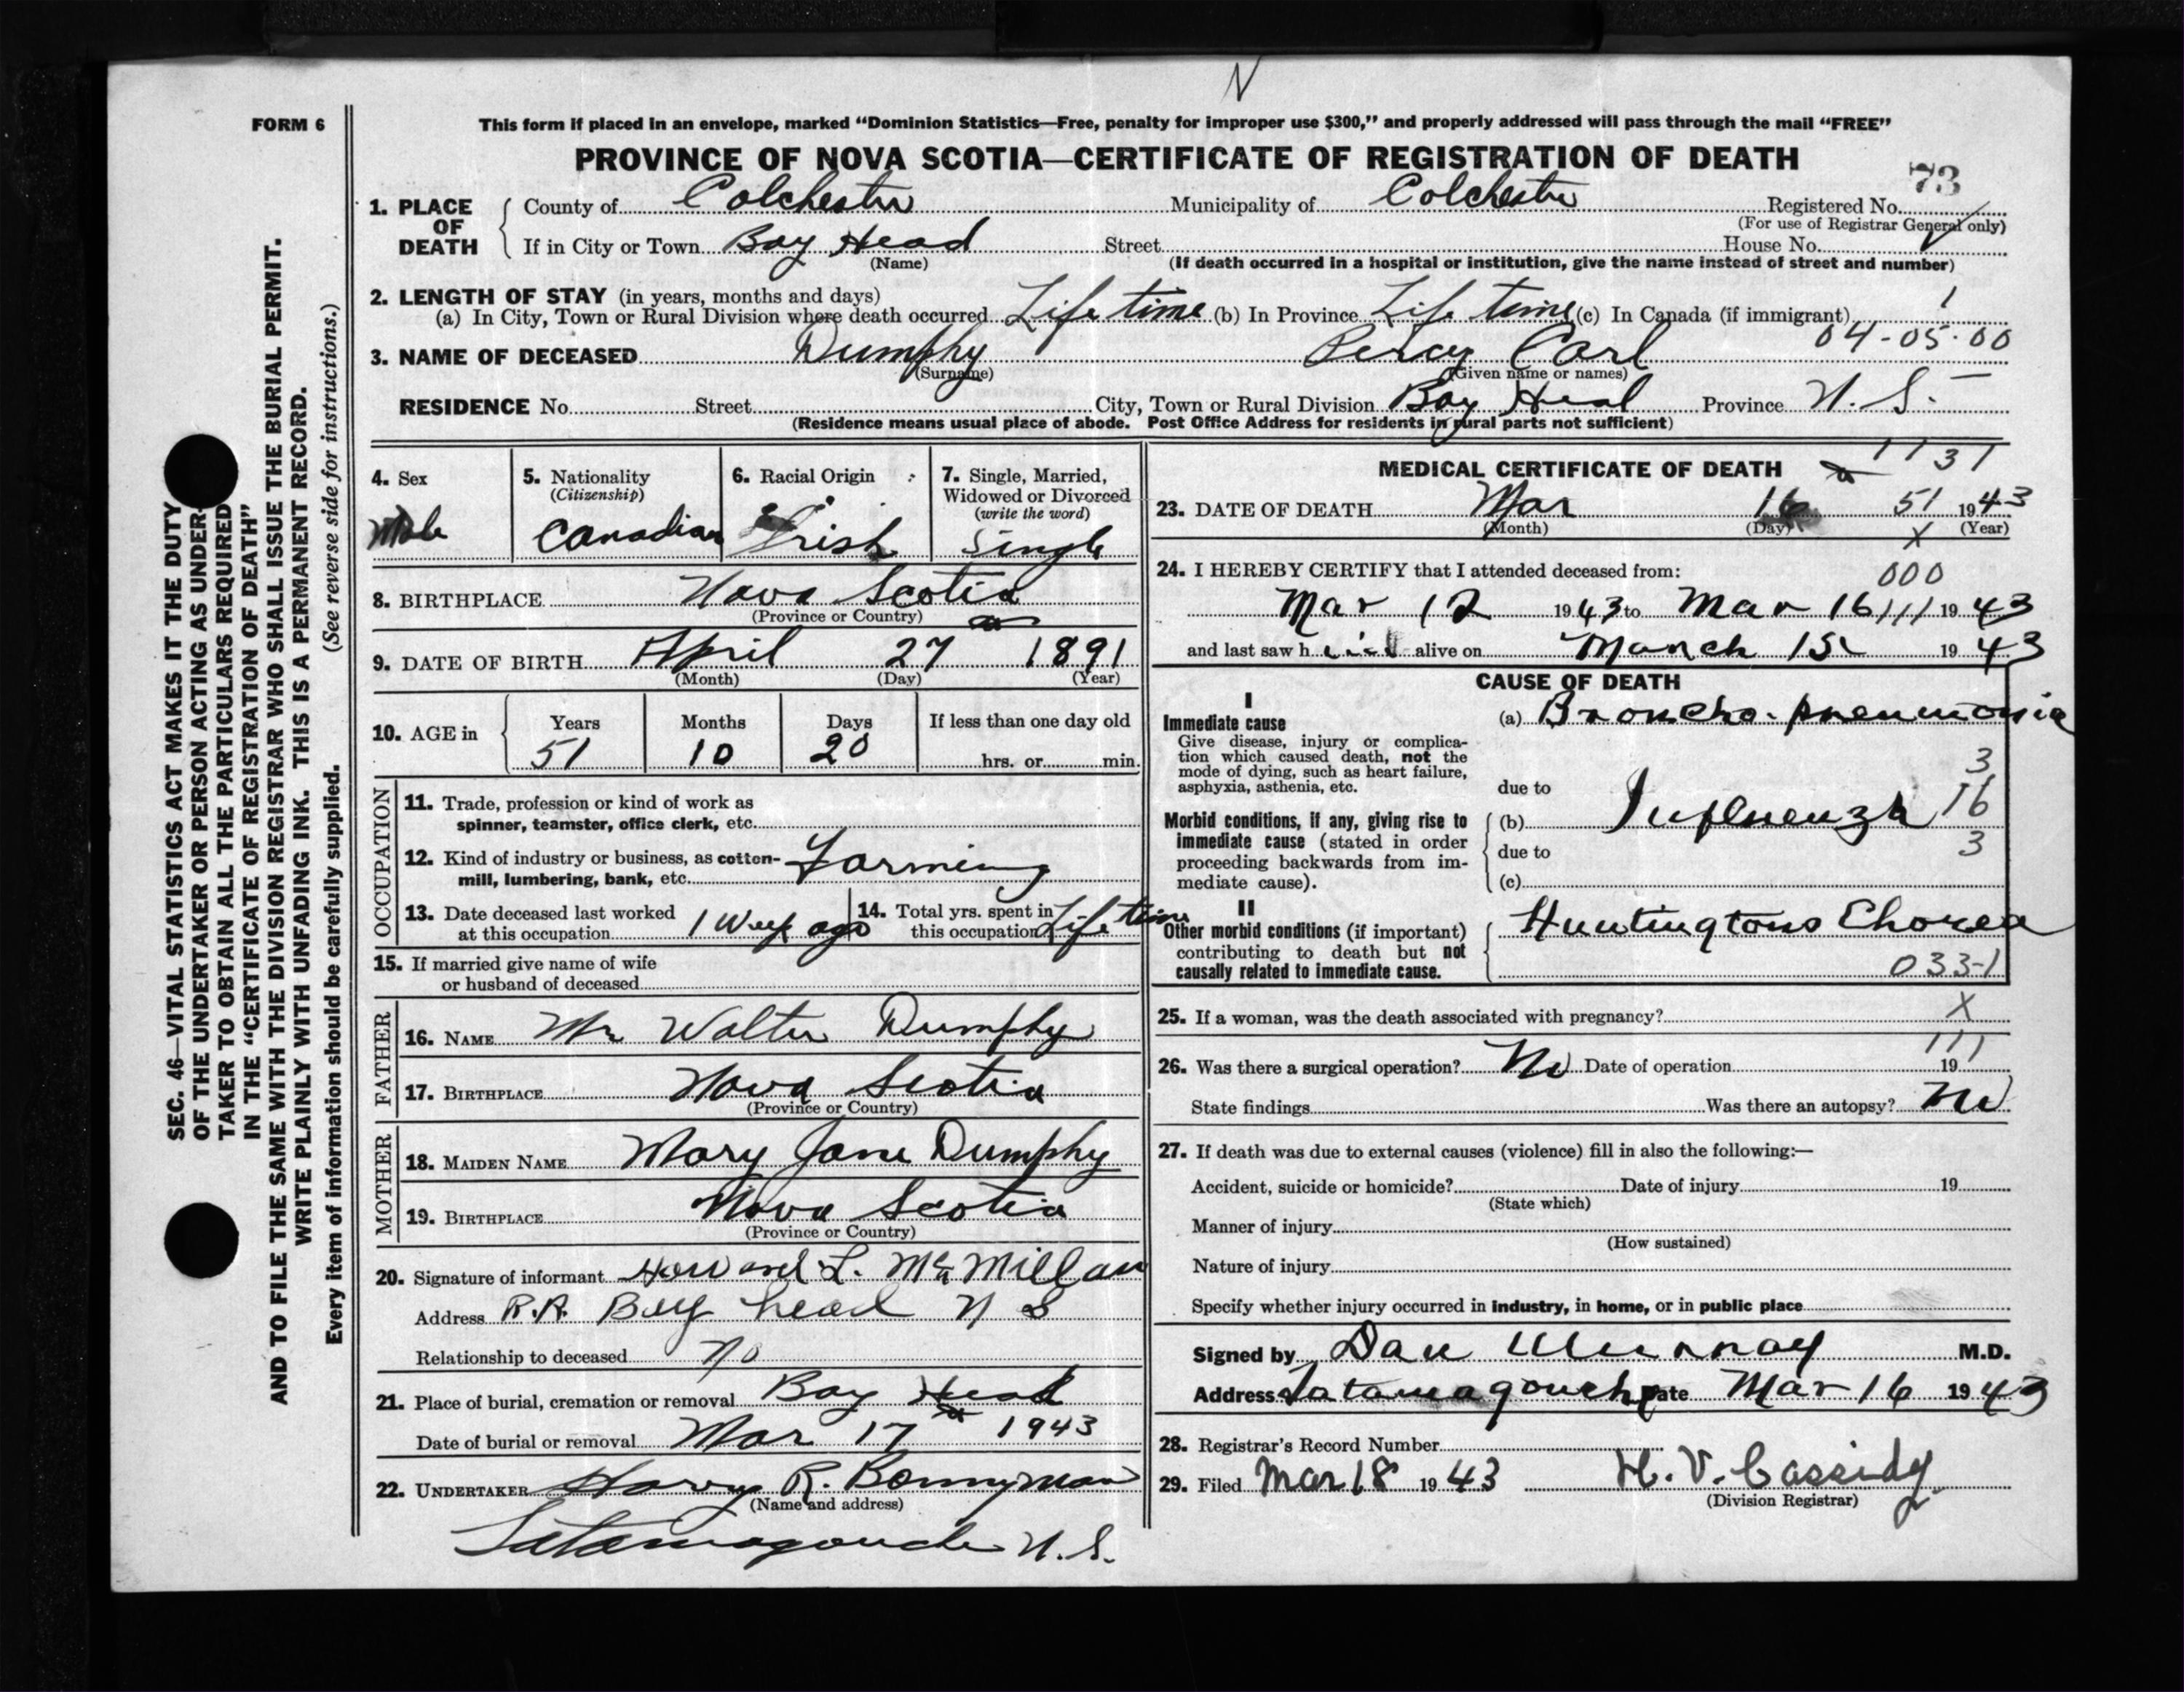 N
FORM 6
This form if placed in an envelope, marked “Dominion Statistics—Free, penalty for improper use $300,” and properly addressed will pass through the mail “FREE”
PROVINCE OF NOVA SCOTIA—CERTIFICATE OF REGISTRATION OF DEATH
73
1. PLACE OF DEATH
County of Colchester Municipality of Colchester Registered No.
(For use of Registrar General only)
If in City or Town Bay Head Street House No.
(Name) (If death occurred in a hospital or institution, give the name instead of street and number)
2. LENGTH OF STAY (in years, months and days)
(a) In City, Town or Rural Division where death occurred Life time (b) In Province Life time (c) In Canada (if immigrant) 1
04-05-00
3. NAME OF DECEASED Dumphy Percy Carl
(Surname) (Given name or names)
RESIDENCE No. Street City, Town or Rural Division Bay Head Province N. S.
(Residence means usual place of abode. Post Office Address for residents in rural parts not sufficient)
4. Sex 5. Nationality (Citizenship) 6. Racial Origin 7. Single, Married, Widowed or Divorced (write the word)
Male Canadian Irish Single
8. BIRTHPLACE Nova Scotia
(Province or Country)
9. DATE OF BIRTH April 27 1891
(Month) (Day) (Year)
10. AGE in Years Months Days If less than one day old
51 10 20 hrs. or min.
OCCUPATION
11. Trade, profession or kind of work as
spinner, teamster, office clerk, etc.
12. Kind of industry or business, as cotton-
mill, lumbering, bank, etc. Farming
13. Date deceased last worked
at this occupation 1 Week ago
14. Total yrs. spent in
this occupation Life time
15. If married give name of wife
or husband of deceased
FATHER
16. NAME Mr Walter Dumphy
17. BIRTHPLACE Nova Scotia
(Province or Country)
MOTHER
18. MAIDEN NAME Mary Jane Dumphy
19. BIRTHPLACE Nova Scotia
(Province or Country)
20. Signature of informant Howard L. McMillan
Address R.R. Bay head N S
Relationship to deceased No
21. Place of burial, cremation or removal Bay Head
Date of burial or removal Mar 17 1943
22. UNDERTAKER Harry R. Bonnyman
(Name and address)
Tatamagouche N.S.
MEDICAL CERTIFICATE OF DEATH
1131
23. DATE OF DEATH Mar 16 51 1943
(Month) (Day) (Year)
X
24. I HEREBY CERTIFY that I attended deceased from:
000
Mar 12 1943 to Mar 16 111 1943
and last saw h im alive on March 15 1943
CAUSE OF DEATH
I
Immediate cause
Give disease, injury or complica-
tion which caused death, not the
mode of dying, such as heart failure,
asphyxia, asthenia, etc.
(a) Broncho-pneumonia
3
due to
16
Morbid conditions, if any, giving rise to
immediate cause (stated in order
proceeding backwards from im-
mediate cause).
(b) Influenza
due to 3
(c)
II
Other morbid conditions (if important)
contributing to death but not
causally related to immediate cause.
Huntingtons Chorea
033-1
25. If a woman, was the death associated with pregnancy? X
111
26. Was there a surgical operation? No Date of operation 19
State findings Was there an autopsy? No
27. If death was due to external causes (violence) fill in also the following:—
Accident, suicide or homicide? Date of injury 19
(State which)
Manner of injury
(How sustained)
Nature of injury
Specify whether injury occurred in industry, in home, or in public place
Signed by Dan Murray M.D.
Address Tatamagouche Date Mar 16 1943
28. Registrar's Record Number
29. Filed Mar 18 1943 H. V. Cassidy
(Division Registrar)
SEC. 46—VITAL STATISTICS ACT MAKES IT THE DUTY
OF THE UNDERTAKER OR PERSON ACTING AS UNDER-
TAKER TO OBTAIN ALL THE PARTICULARS REQUIRED
IN THE “CERTIFICATE OF REGISTRATION OF DEATH”
AND TO FILE THE SAME WITH THE DIVISION REGISTRAR WHO SHALL ISSUE THE BURIAL PERMIT.
WRITE PLAINLY WITH UNFADING INK. THIS IS A PERMANENT RECORD.
Every item of information should be carefully supplied. (See reverse side for instructions.)